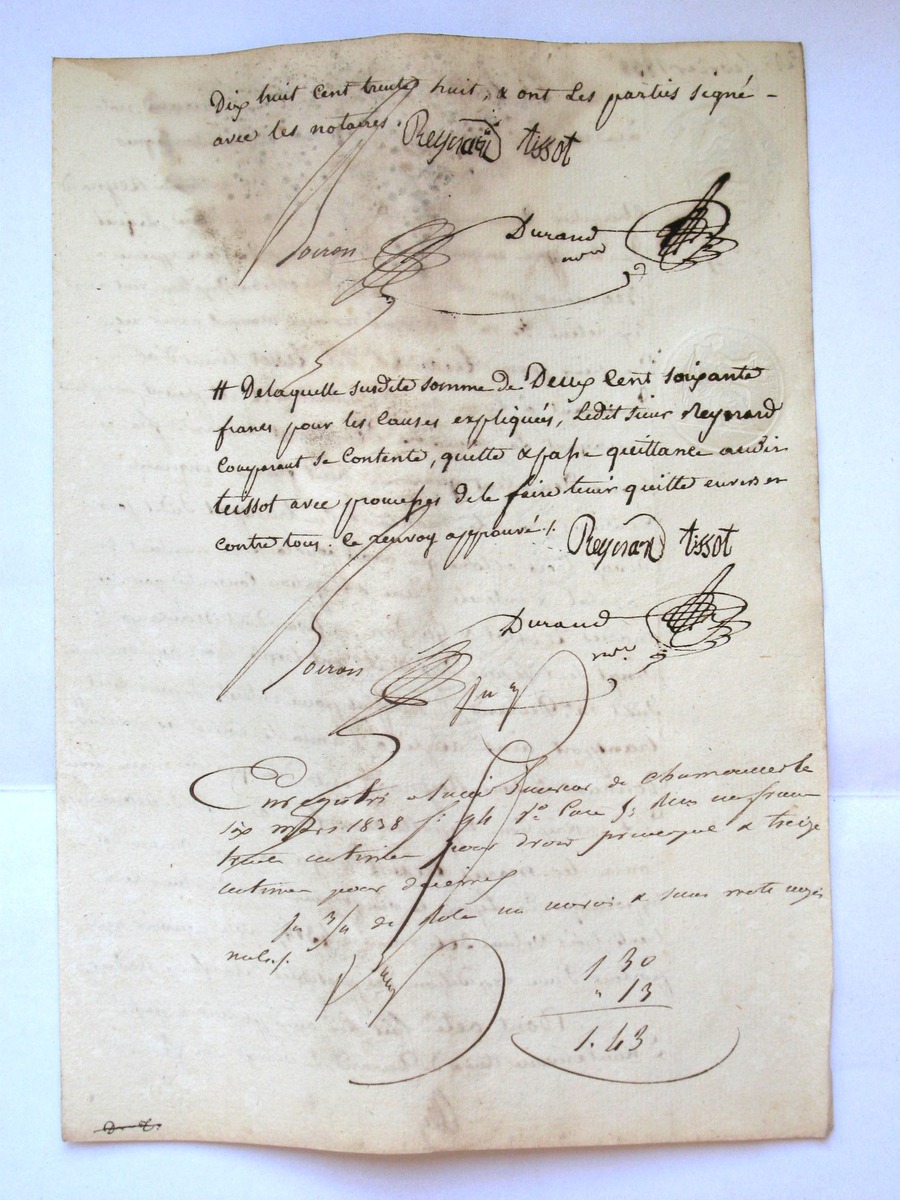 Dix huit Cent trente huit, & ont Les parties signé -
avec les notaires. Reynard tissot
Boiron Durand
nore
# Delaquelle susdite somme de Deux Cent soixante
francs pour les Causes expliquées, Ledit sieur Reynard
Comparant se Contente, quitte & passe quittance audit
teissot avec promesses de le faire tenir quitte envers et
contre tous. le renvoy approuvé /. Reynard tissot
Durand
Boiron nore
Enregistré a de
six mars 1838 fo 94 Vo Case 5; un franc
trente centimes pour droit principal & treize
centimes pour decime
de un renvoi & mots rayés
nuls /.
1 30
" 13
1. 43